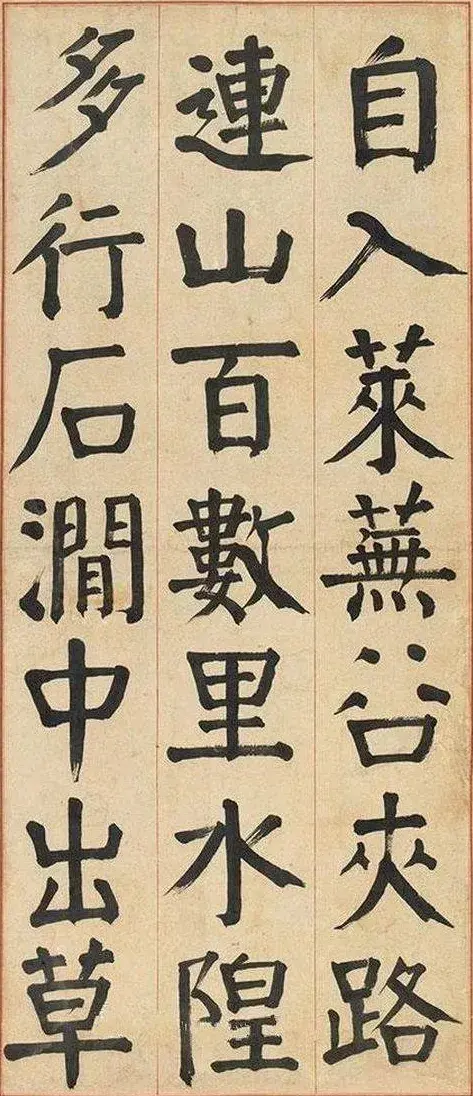 自入萊蕪谷夾路
連山百數里水隍
多行石澗中出草